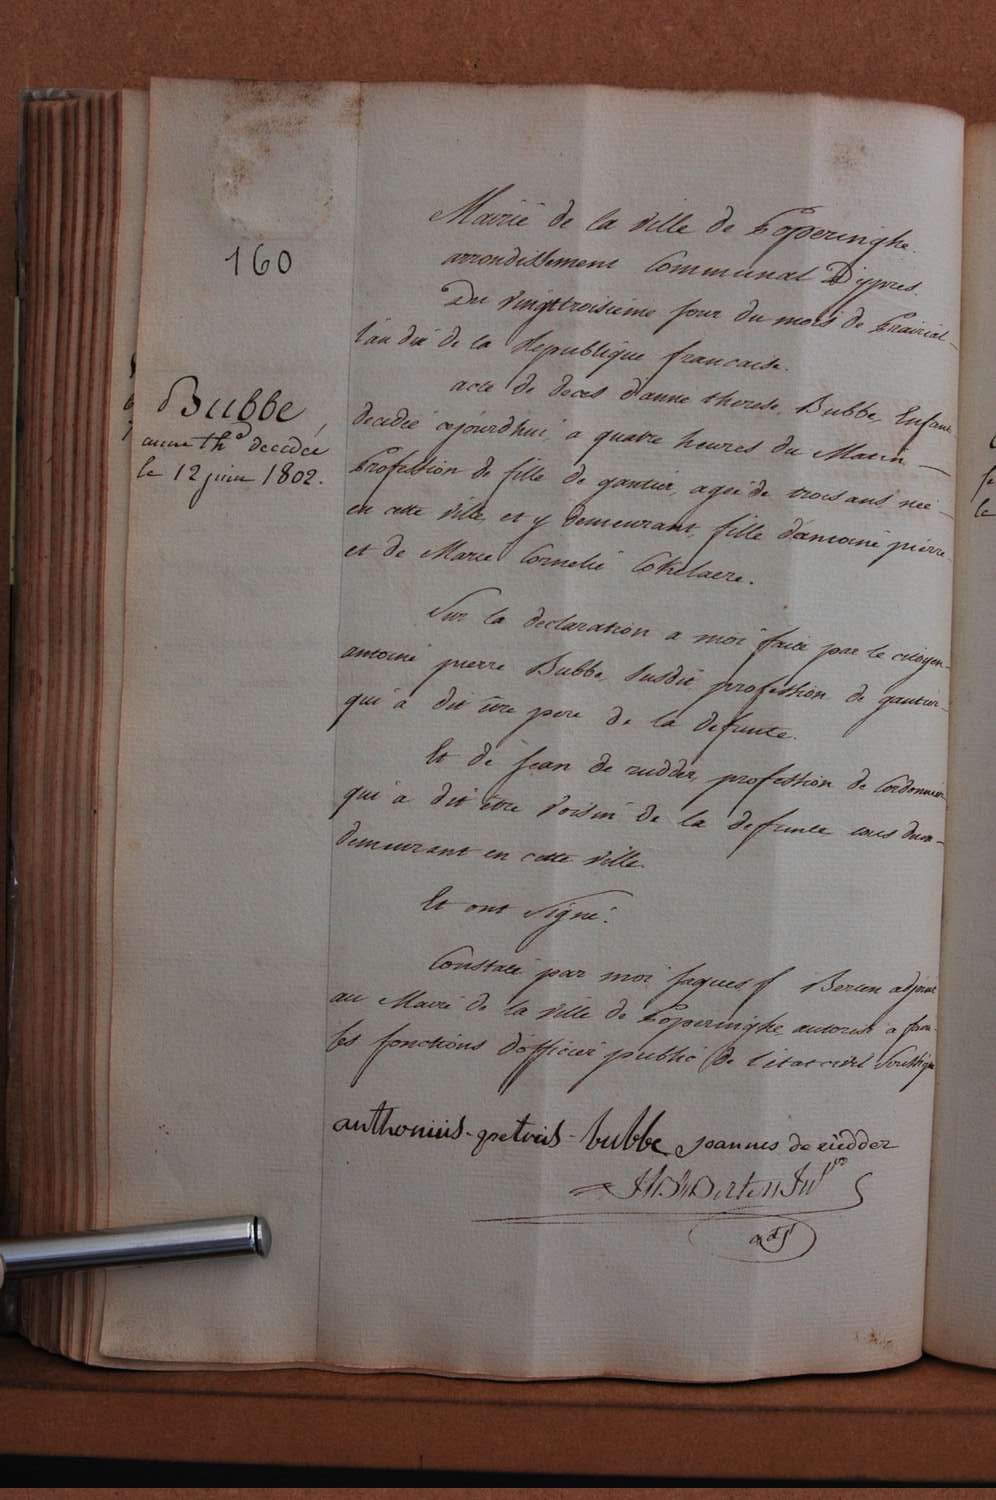 160
Bubbe,
anne th.e decedée
le 12 juin 1802.
Mairié de la ville de Poperinghe.
arrondissement Communal D'ypres.
Du vingttroisieme jour du mois de Prairial
l'an dix de la Republique francaise.
acte de deces d'anne therese Bubbe, Enfant
decedée cejourdhui a quatre heures du Matin
Profession de fille de gantier, agée de trois ans née
en cette ville, et y demeurant, fille d'antoine pierre
et de Marie Cornelie Cokelaere.
Sur la declaration a moi faite par le citoyen
antoine pierre Bubbe susdit profession de gantier
qui a dit être pere de la defunte.
Et de jean de rudder, profession de Cordonnier
qui a dit être voisin de la defunte tous deux
demeurant en cette ville.
Et ont signé.
Constaté par moi jaques f Berten adjoint
au Maire de la ville de Poperinghe autorisé a faire
les fonctions d'officier public de l'etat civil soussigné
anthonius petrus bubbe joannes de rudder
Berten
adj